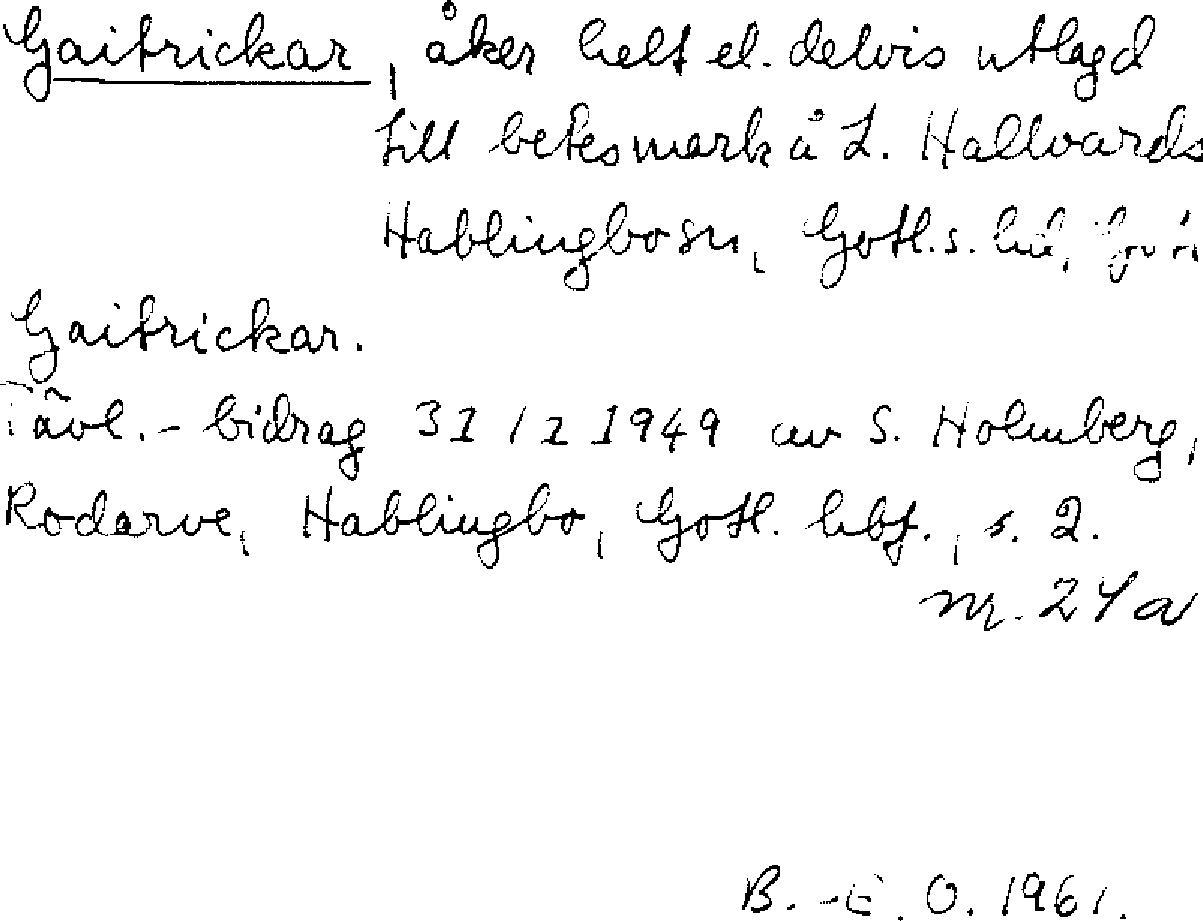 Gaitrickar, åker helt el. delvis utlagd
till betesmark å L. Hallvards
Hablingbo sn, Gotl. s. hd,
Gaitrickar.
Tävl.-bidrag 31/1 1949 av S. Holmberg,
Rodarve, Hablingbo, Gotl. hbf., s. 2.
nr. 24a
B.-E. O. 1961.